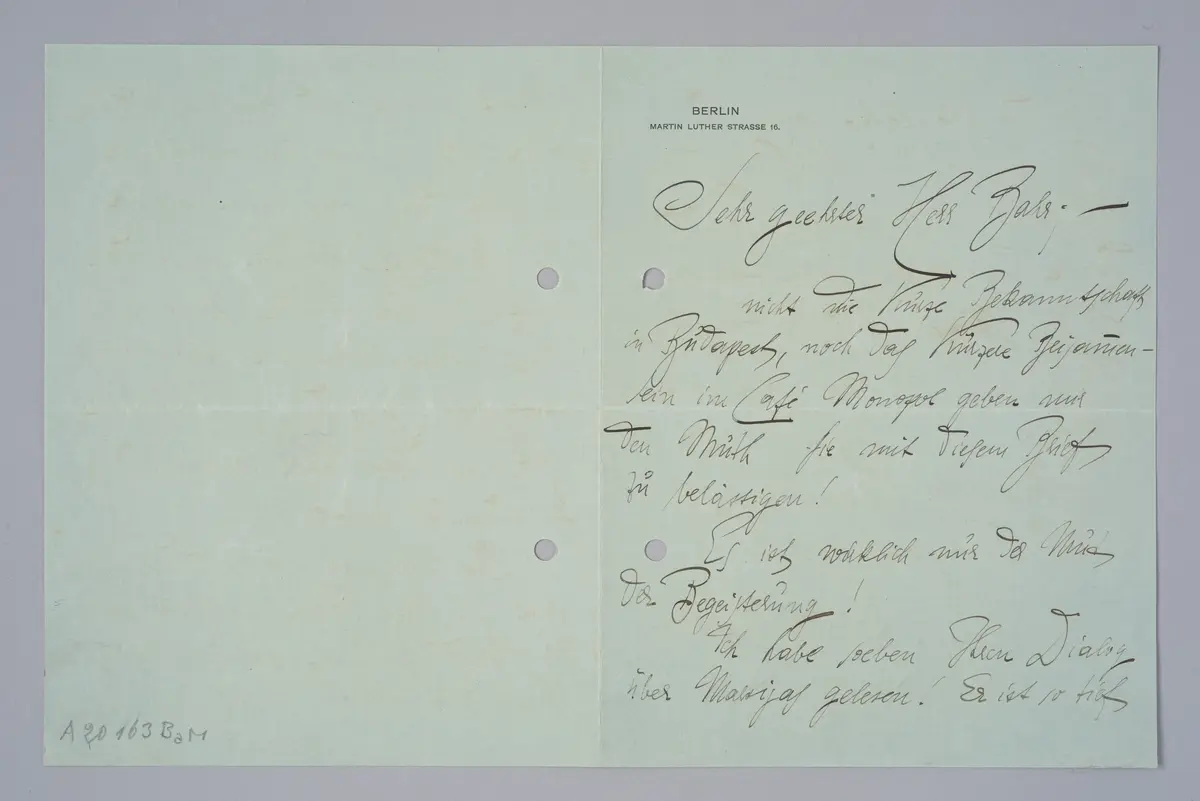 BERLIN
MARTIN LUTHER STRASSE 16.
Sehr geehrter Herr Bahr; —
nicht die kurze Bekanntschaft
in Budapest, noch das kürzere Beisammen-
sein im Café Monopol geben mir
den Muth Sie mit diesem Brief
zu belästigen!
Es ist wirklich nur der Mut
der Begeisterung!
Ich habe soeben Ihren Dialog
über Marsyas gelesen! Er ist so tief
A 20163 BaM